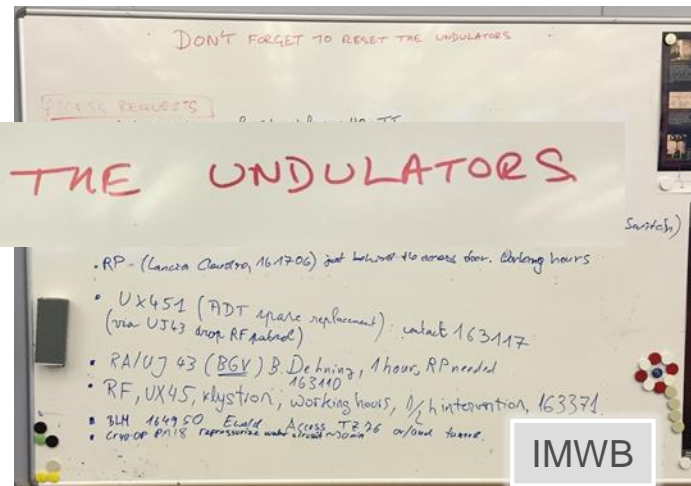 DON'T FORGET TO RESET THE UNDULATORS
ACCESS REQUESTS
THE UNDULATORS
Switch)
• RP - (Lancia Claudia, 161706) just behind the access door. Working hours
• UX451 (ADT spare replacement): contact 163117
(via UJ43 drop RF patrol)
• RA/UJ 43 (BGV) B. Dehning, 1 hour, RP needed
163110
• RF, UX45, klystron, working hours, intervention, 163371
• BLM 164950 Ewald Access TZ76
• Cryo-OP PM18 repressurize water circuit ~30min tunnel.
IMWB